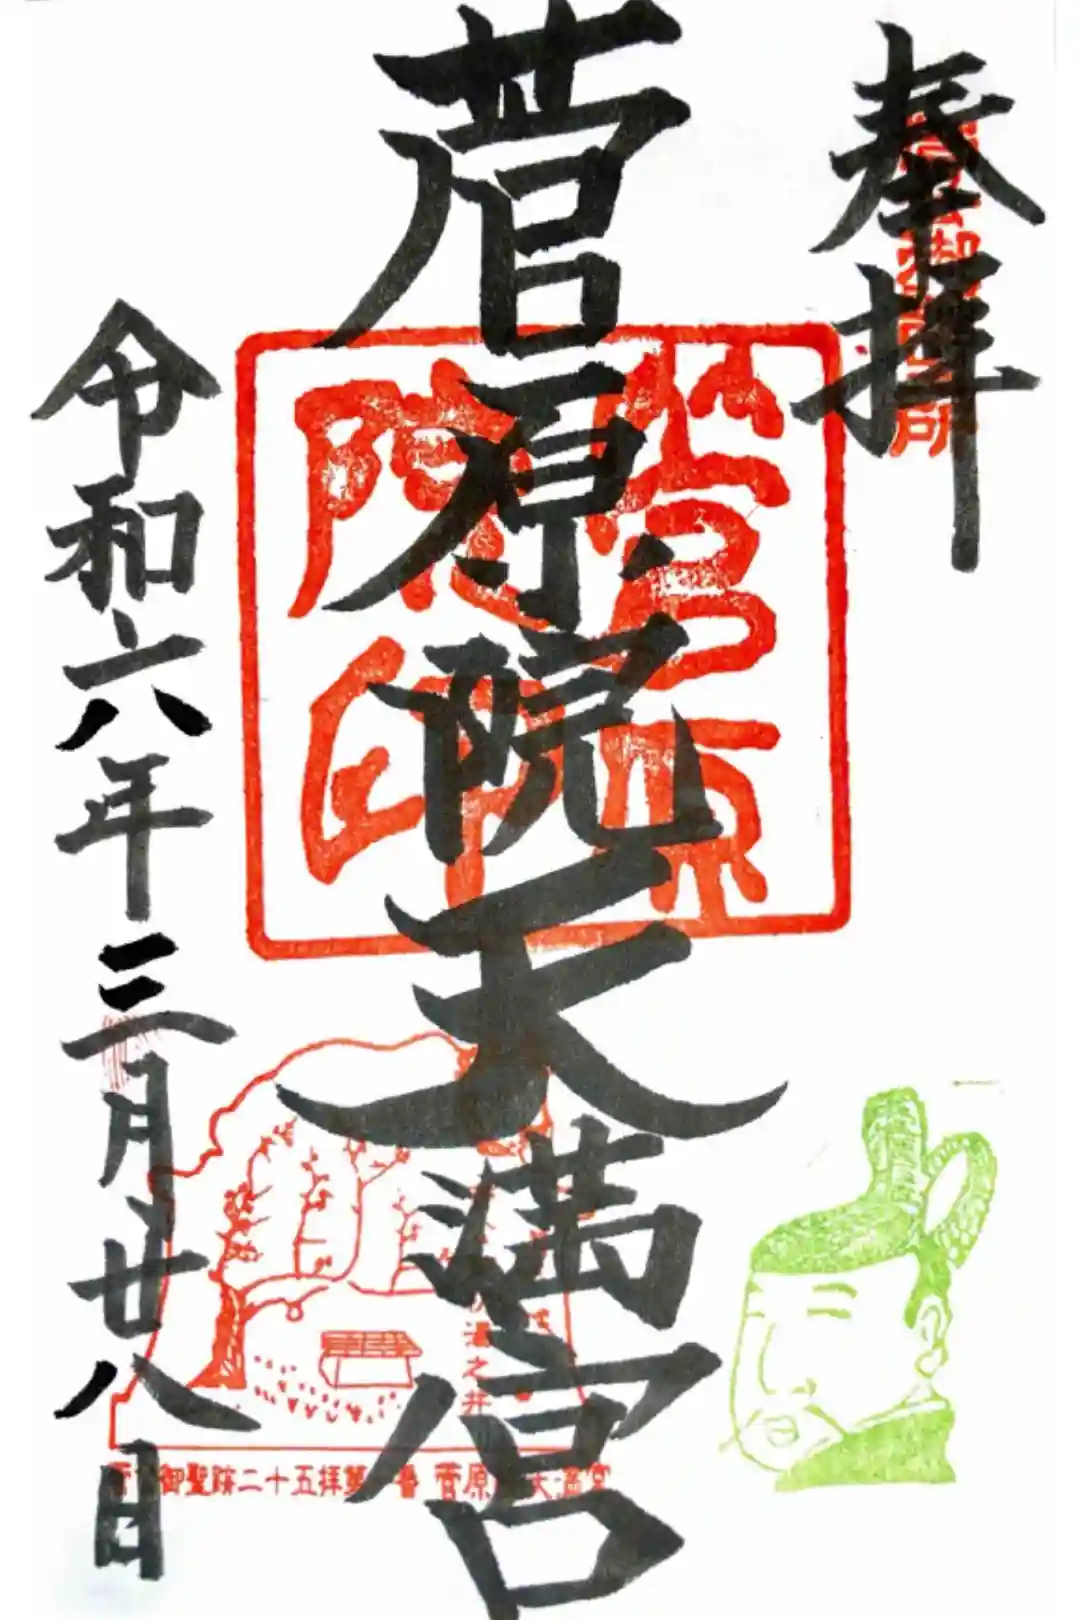 奉拝
菅原院天満宮
令和六年三月廿八日
菅原
院印
之井
御聖跡二十五拝第一番 菅原院天満宮